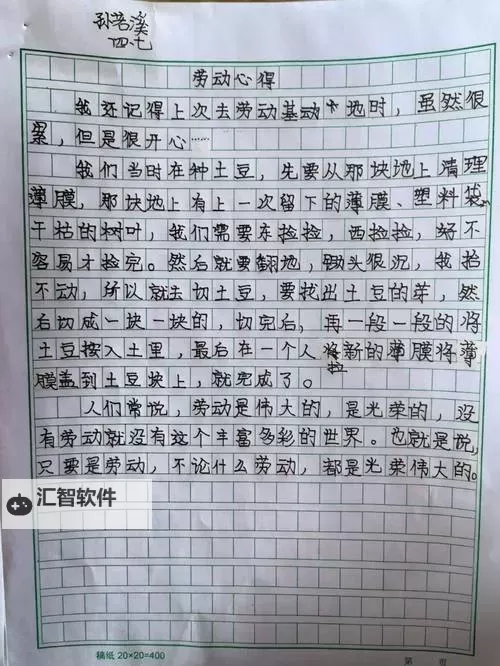 孙若溪
四七
劳动心得
我还记得上次去劳动基动地时，虽然很
累，但是很开心……
我们当时在种土豆，先要从那块地上清理
薄膜，那块地上有上一次留下的薄膜、塑料袋
干枯的树叶，我们需要东捡捡，西捡捡，好不
容易才捡完。然后就要翻地，锄头很沉，我抬
不动，所以就去切土豆，要找出土豆的芽，然
后切成一块一块的，切完后，再一段一段的将
土豆按入土里，最后在一个人将新的薄膜将薄
拉
膜盖到土豆块上，就完成了。
人们常说，劳动是伟大的，是光荣的，没
有劳动就没有这个丰富多彩的世界。也就是说，
只要是劳动，不论什么劳动，都是光荣伟大的。
汇智软件
稿纸 20×20=400
第 页